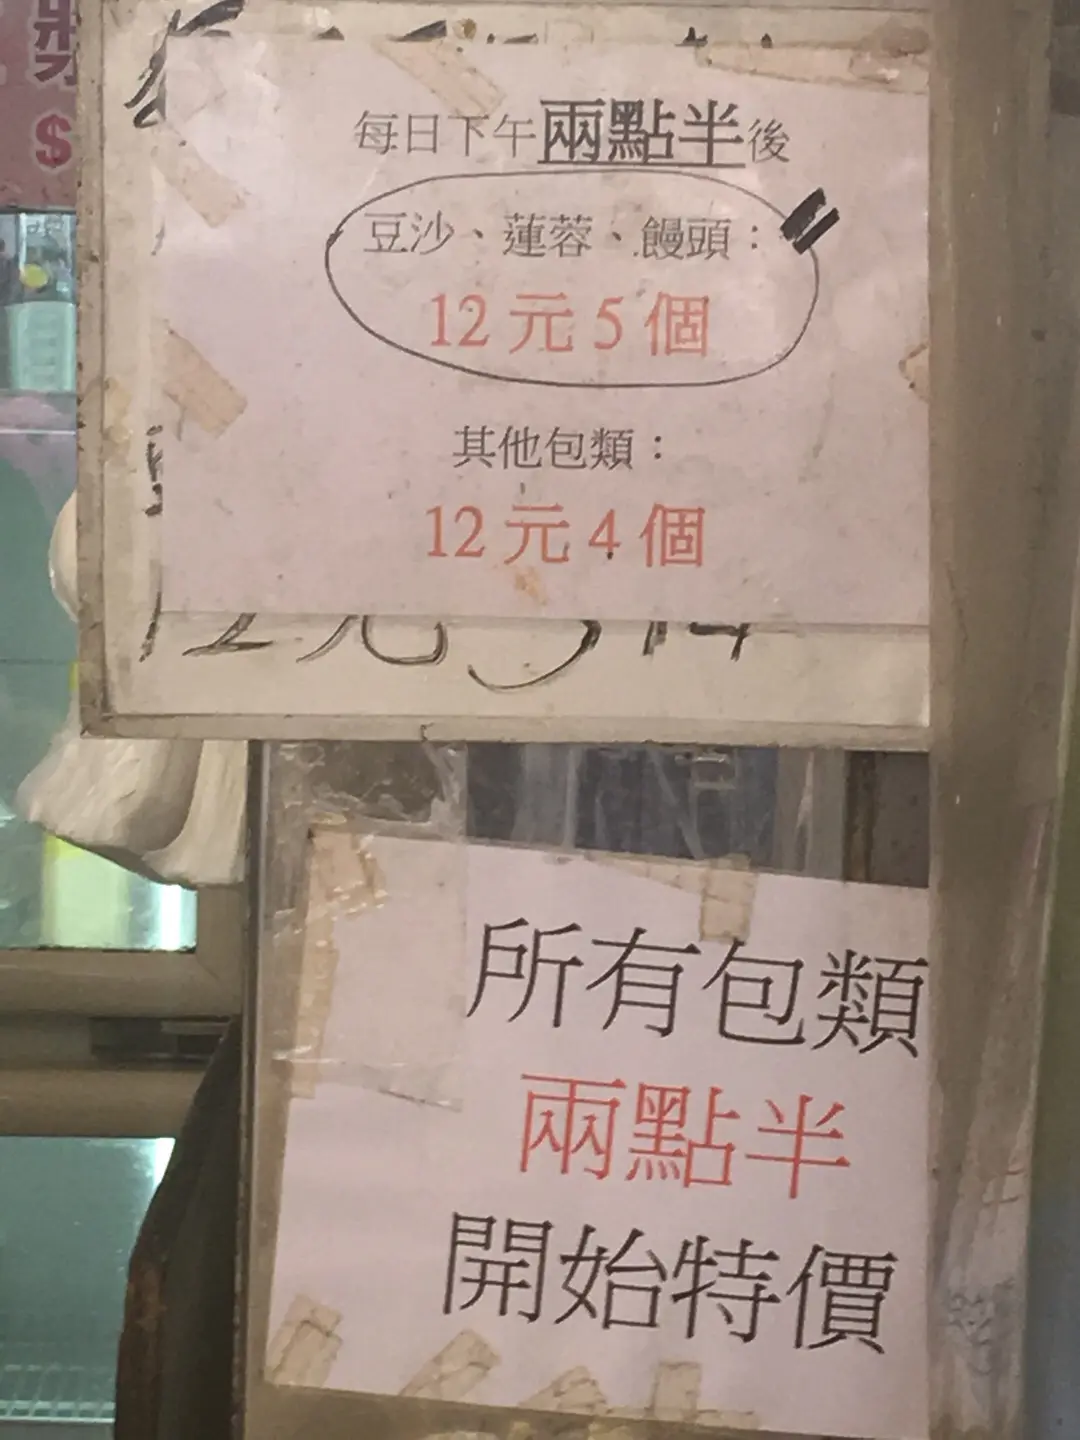 $
每日下午兩點半後
豆沙、蓮蓉、饅頭：
12元5個
其他包類：
12元4個
所有包類
兩點半
開始特價